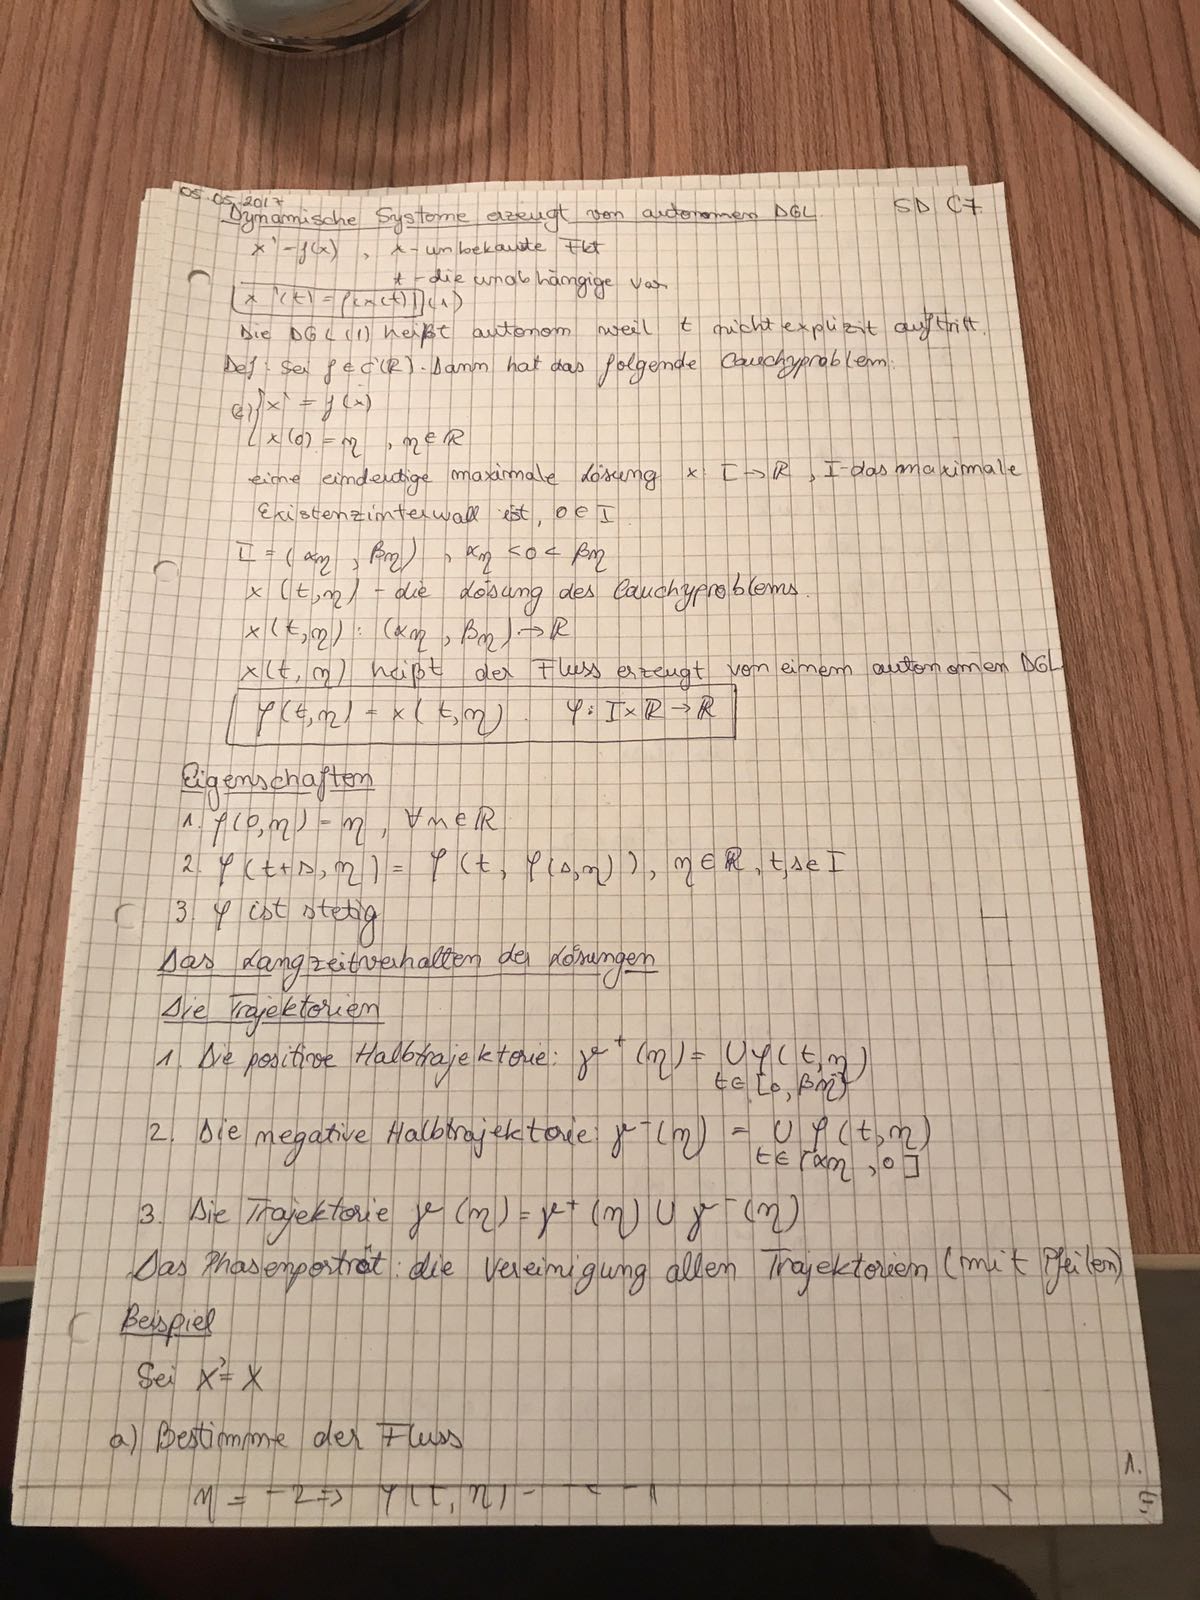 05.05.2017
Dynamische Systeme erzeugt von autonomen DGL SD C7
x' = f(x) , x - unbekannte Fkt
t - die unabhängige var
x'(t) = f(x(t)) (1)
Die DGL (1) heißt autonom weil t nicht explizit auftritt.
Def: Sei f ∈ C¹(ℝ). Dann hat das folgende Cauchyproblem:
x' = f(x)
x(0) = η , η ∈ ℝ
eine eindeutige maximale Lösung x: I → ℝ , I - das maximale
Existenzinterwall ist, 0 ∈ I
I = (αη , βη) , αη < 0 < βη
x (t,η) - die Lösung des Cauchyproblems.
x(t,η) : (αη , βη) → ℝ
x(t,η) heißt der Fluss erzeugt von einem autonomen DGL
φ(t,η) = x(t,η). φ: I×ℝ → ℝ
Eigenschaften
1. φ(0,η) = η , ∀η ∈ ℝ
2. φ(t+s, η) = φ(t, φ(s,η)), η ∈ ℝ, t,s ∈ I
3. φ ist stetig
Das Langzeitverhalten der Lösungen
Die Trajektorien
1. Die positive Halbtrajektorie: γ⁺(η) = ∪ φ(t,η)
t ∈ [0, βη)
2. Die negative Halbtrajektorie: γ⁻(η) = ∪ φ(t,η)
t ∈ (αη , 0]
3. Die Trajektorie γ(η) = γ⁺(η) ∪ γ⁻(η)
Das Phasenporträt: die Vereinigung allen Trajektorien (mit Pfeilen)
Beispiel
Sei x' = x
a) Bestimme der Fluss
1.
η = -2 ⇒ φ(t,η) =